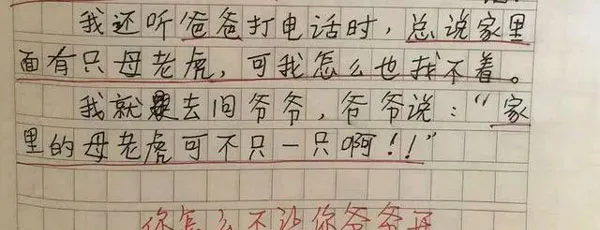 我还听爸爸打电话时，总说家里
面有只母老虎，可我怎么也找不着。
我就去问爷爷，爷爷说：“家
里的母老虎可不只一只啊！！”
你怎么不让你爷爷再